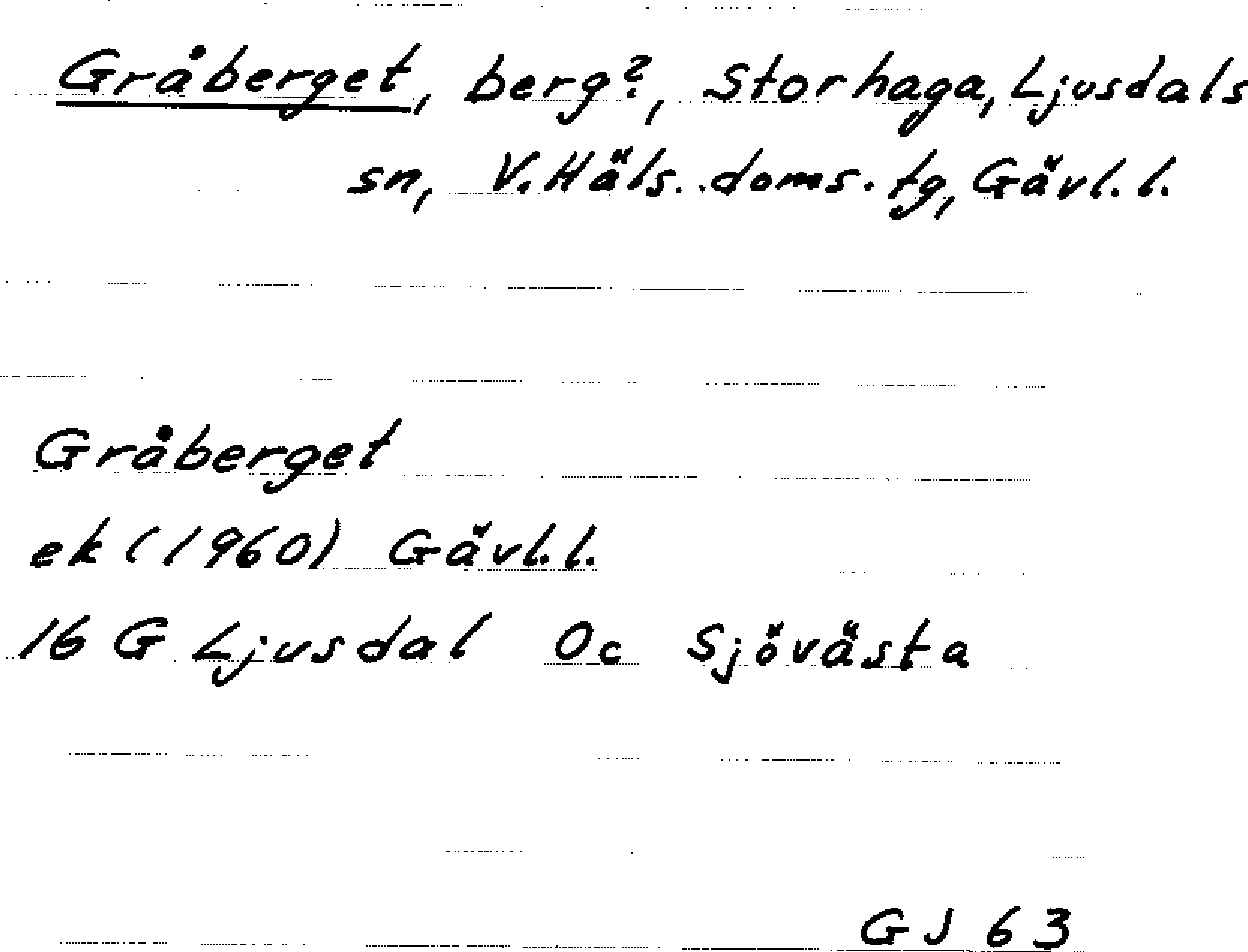 Gråberget, berg?, Storhaga, Ljusdals
sn, V. Häls. doms. tg, Gävl. l.
Gråberget
ek (1960) Gävl. l.
16 G Ljusdal 0c Sjövästa
GJ 63